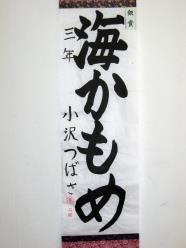 銀賞
海かもめ
三年
小沢つばさ